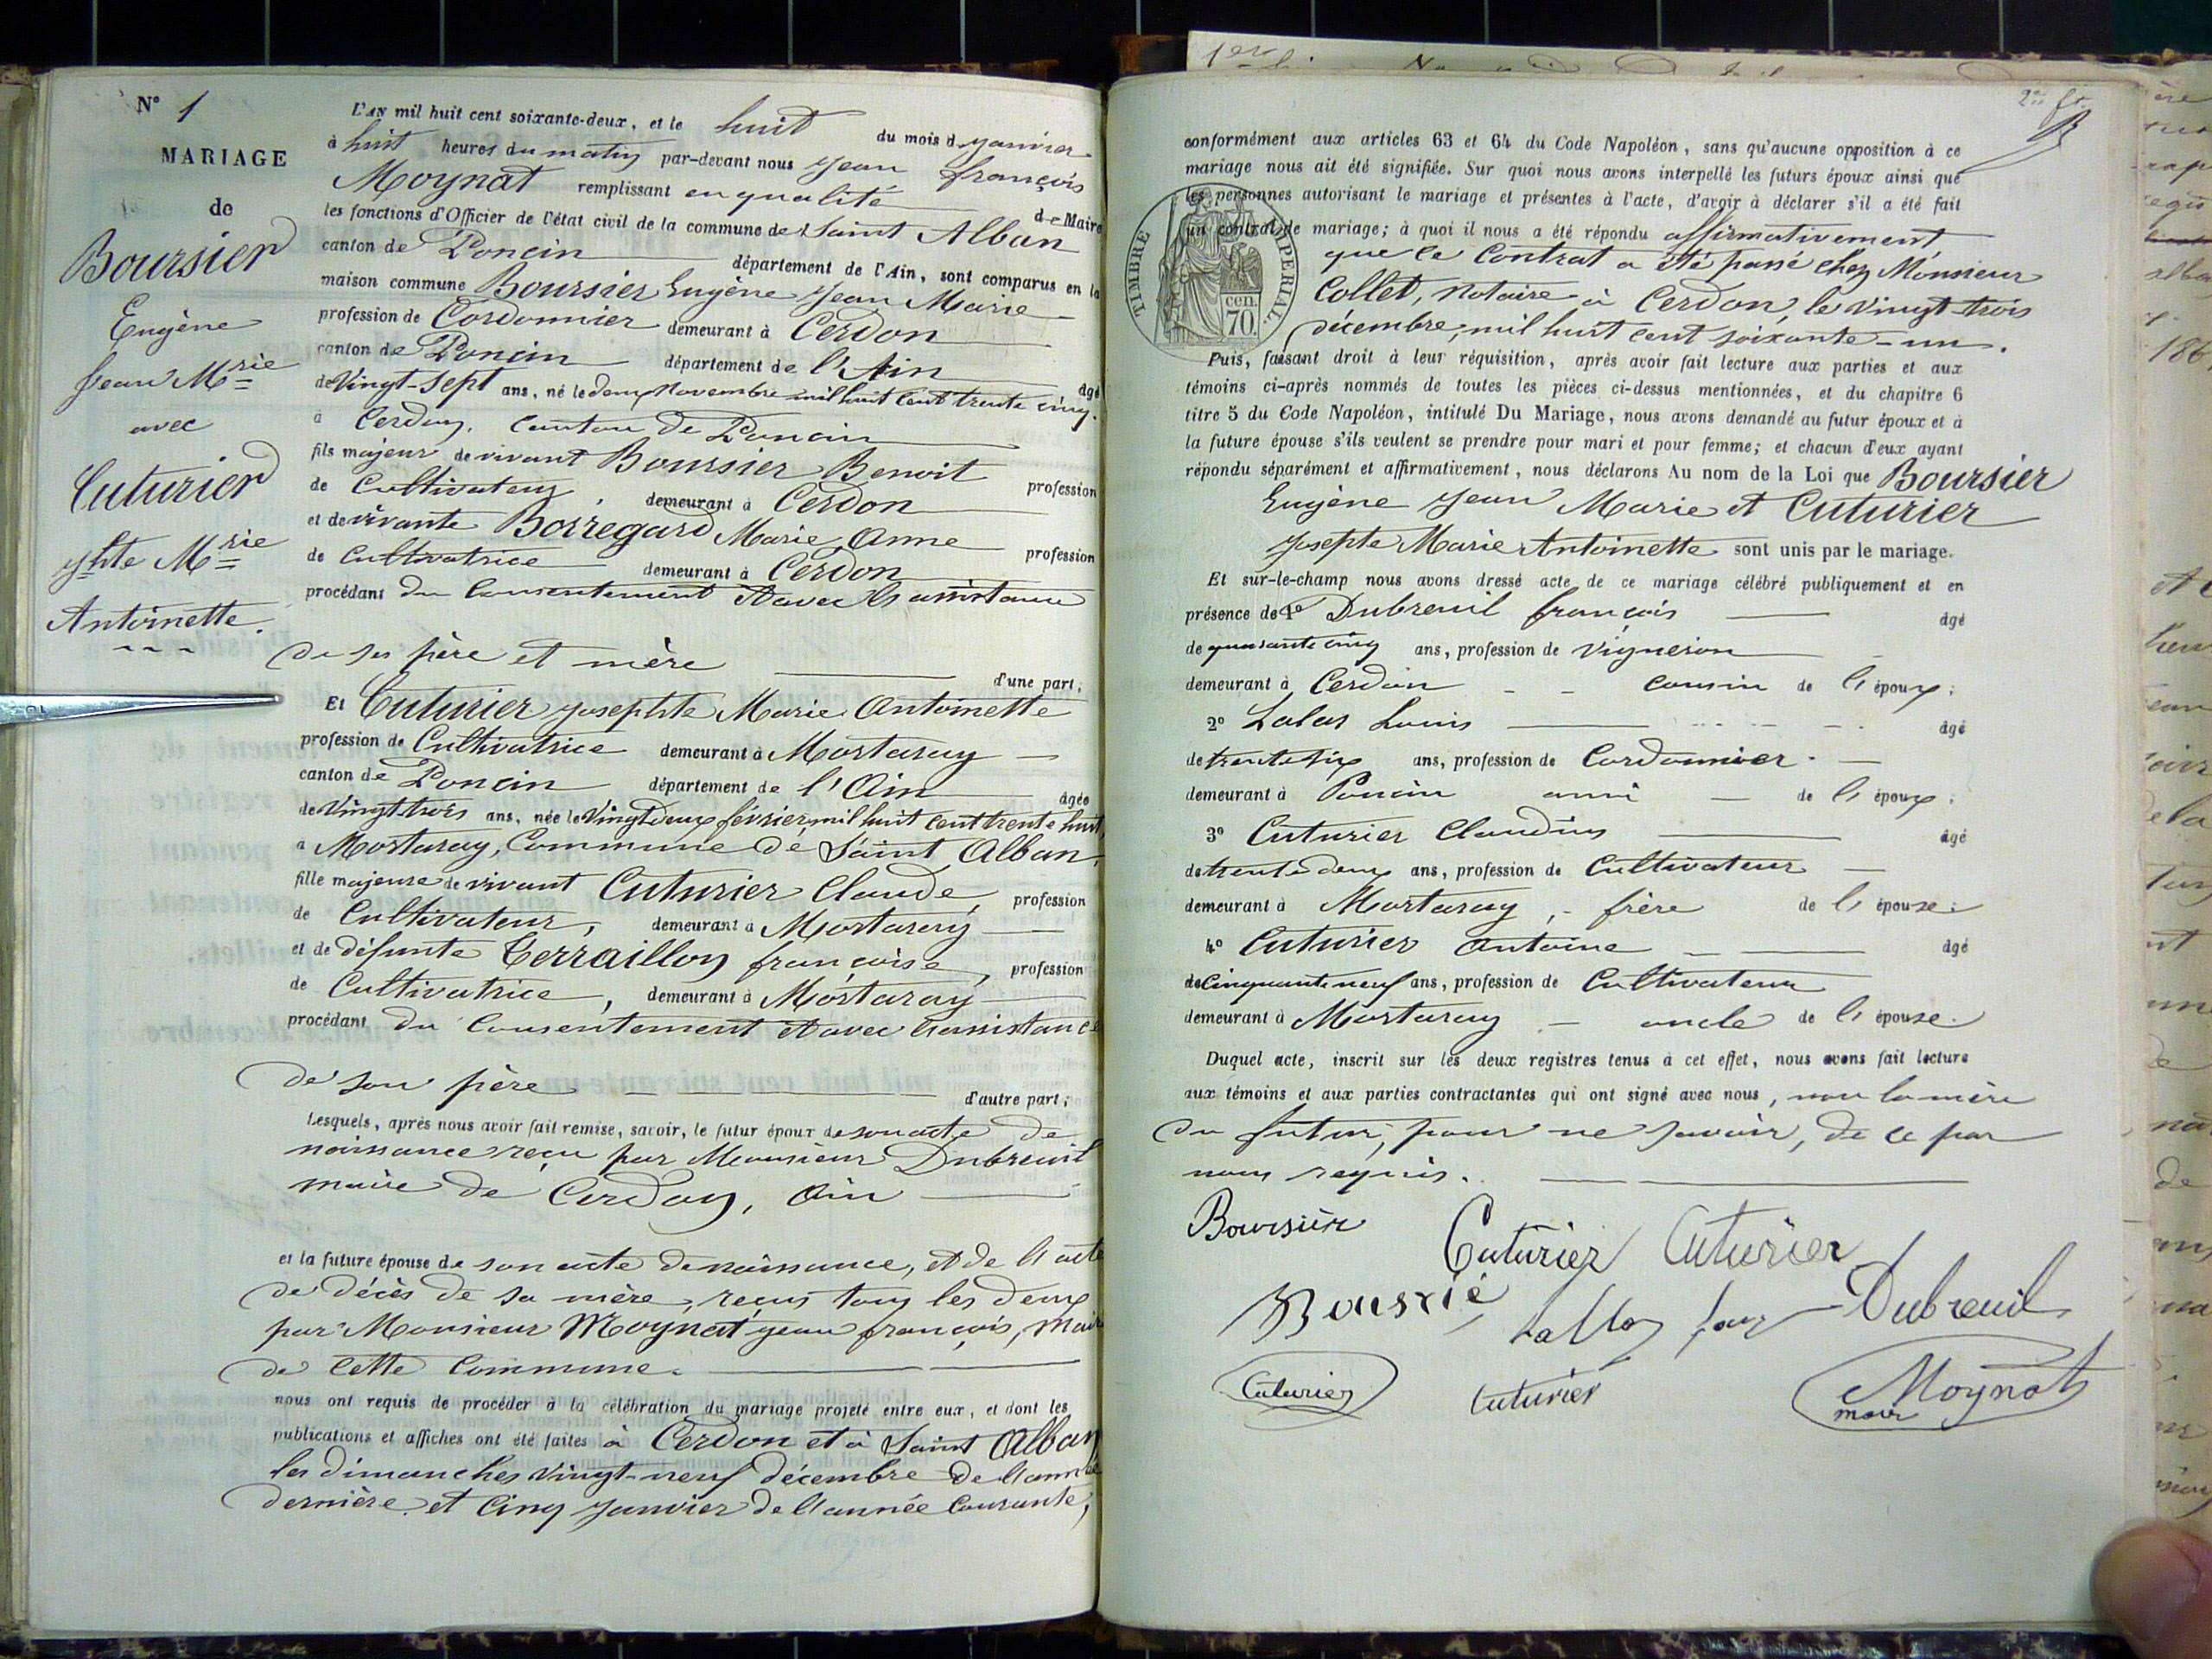 N° 1
MARIAGE
de
Boursier
Eugène
Jean Mrie
avec
Cuturier
Jphte Mrie
Antoinette.
L'AN mil huit cent soixante-deux, et le huit du mois d janvier
à huit heures du matin par-devant nous Jean françois
Moynat remplissant en qualité de Maire
les fonctions d'Officier de l'état civil de la commune de Saint Alban
canton de Poncin département de l'Ain, sont comparus en la
maison commune Boursier Eugène Jean Marie
profession de Cordonnier demeurant à Cerdon
canton de Poncin département de l'Ain âgé
de Vingt-sept ans, né le deux Novembre mil huit cent trente cinq.
à Cerdon, Canton de Poncin
fils majeur de vivant Boursier Benoit profession
de Cultivateur, demeurant à Cerdon
et de vivante Borregard Marie Anne profession
de Cultivatrice demeurant à Cerdon
procédant du Consentement et avec l'assistance
de ses père et mère d'une part;
Et Cuturier Josephte Marie Antoinette
profession de Cultivatrice demeurant à Mortaray
canton de Poncin département de l'Ain âgée
de Vingt trois ans, née le Vingt deux février mil huit cent trente huit
à Mortaray, Commune de Saint Alban,
fille majeure de vivant Cuturier Claude, profession
de Cultivateur, demeurant à Mortaray
et de défunte Terraillon françoise, profession
de Cultivatrice, demeurant à Mortaray
procédant du Consentement et avec l'assistance
de son père d'autre part;
Lesquels, après nous avoir fait remise, savoir, le futur époux de son acte de
naissance reçu par Monsieur Dubreuil
maire de Cerdon, Ain
et la future épouse de son acte de naissance, et de l'acte
de décès de sa mère, reçus tous les deux
par Monsieur Moynat Jean françois, Maire
de cette Commune.
nous ont requis de procéder à la célébration du mariage projeté entre eux, et dont les
publications et affiches ont été faites à Cerdon et à Saint Alban
les dimanches vingt-neuf décembre de l'année
dernière et Cinq Janvier de l'année Courante,
conformément aux articles 63 et 64 du Code Napoléon, sans qu'aucune opposition à ce
mariage nous ait été signifiée. Sur quoi nous avons interpellé les futurs époux ainsi que
les personnes autorisant le mariage et présentes à l'acte, d'avoir à déclarer s'il a été fait
un contrat de mariage; à quoi il nous a été répondu affirmativement
que le Contrat a été passé chez Monsieur
Collet, Notaire à Cerdon, le vingt-trois
décembre, mil huit cent soixante-un.
TIMBRE IMPERIAL
cen.
70.
Puis, faisant droit à leur réquisition, après avoir fait lecture aux parties et aux
témoins ci-après nommés de toutes les pièces ci-dessus mentionnées, et du chapitre 6
titre 5 du Code Napoléon, intitulé Du Mariage, nous avons demandé au futur époux et à
la future épouse s'ils veulent se prendre pour mari et pour femme; et chacun d'eux ayant
répondu séparément et affirmativement, nous déclarons Au nom de la Loi que Boursier
Eugène Jean Marie et Cuturier
Josephte Marie Antoinette sont unis par le mariage.
Et sur-le-champ nous avons dressé acte de ce mariage célébré publiquement et en
présence de 1° Dubreuil françois âgé
de quarante cinq ans, profession de Vigneron
demeurant à Cerdon cousin de l'époux;
2° Lalas Louis âgé
de trente six ans, profession de Cordonnier.
demeurant à Poncin ami de l'époux;
3° Cuturier Claudius âgé
de trente deux ans, profession de Cultivateur
demeurant à Mortaray, frère de l'épouse;
4° Cuturier Antoine âgé
de Cinquante neuf ans, profession de Cultivateur
demeurant à Mortaray oncle de l'épouse.
Duquel acte, inscrit sur les deux registres tenus à cet effet, nous avons fait lecture
aux témoins et aux parties contractantes qui ont signé avec nous, non la mère
du futur, pour ne savoir, de ce par
nous requis.
Boursier
Cuturier Cuturier
Boursié Dubreuil
Cuturier Cuturier Moynat
maire